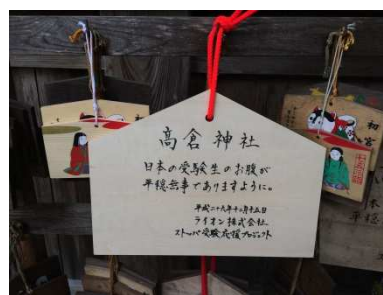 高倉神社
日本の受験生のお腹が
平穏無事でありますように。
平成二十九年十一月十五日
ライオン株式会社
ストッパ受験応援プロジェクト
初宮